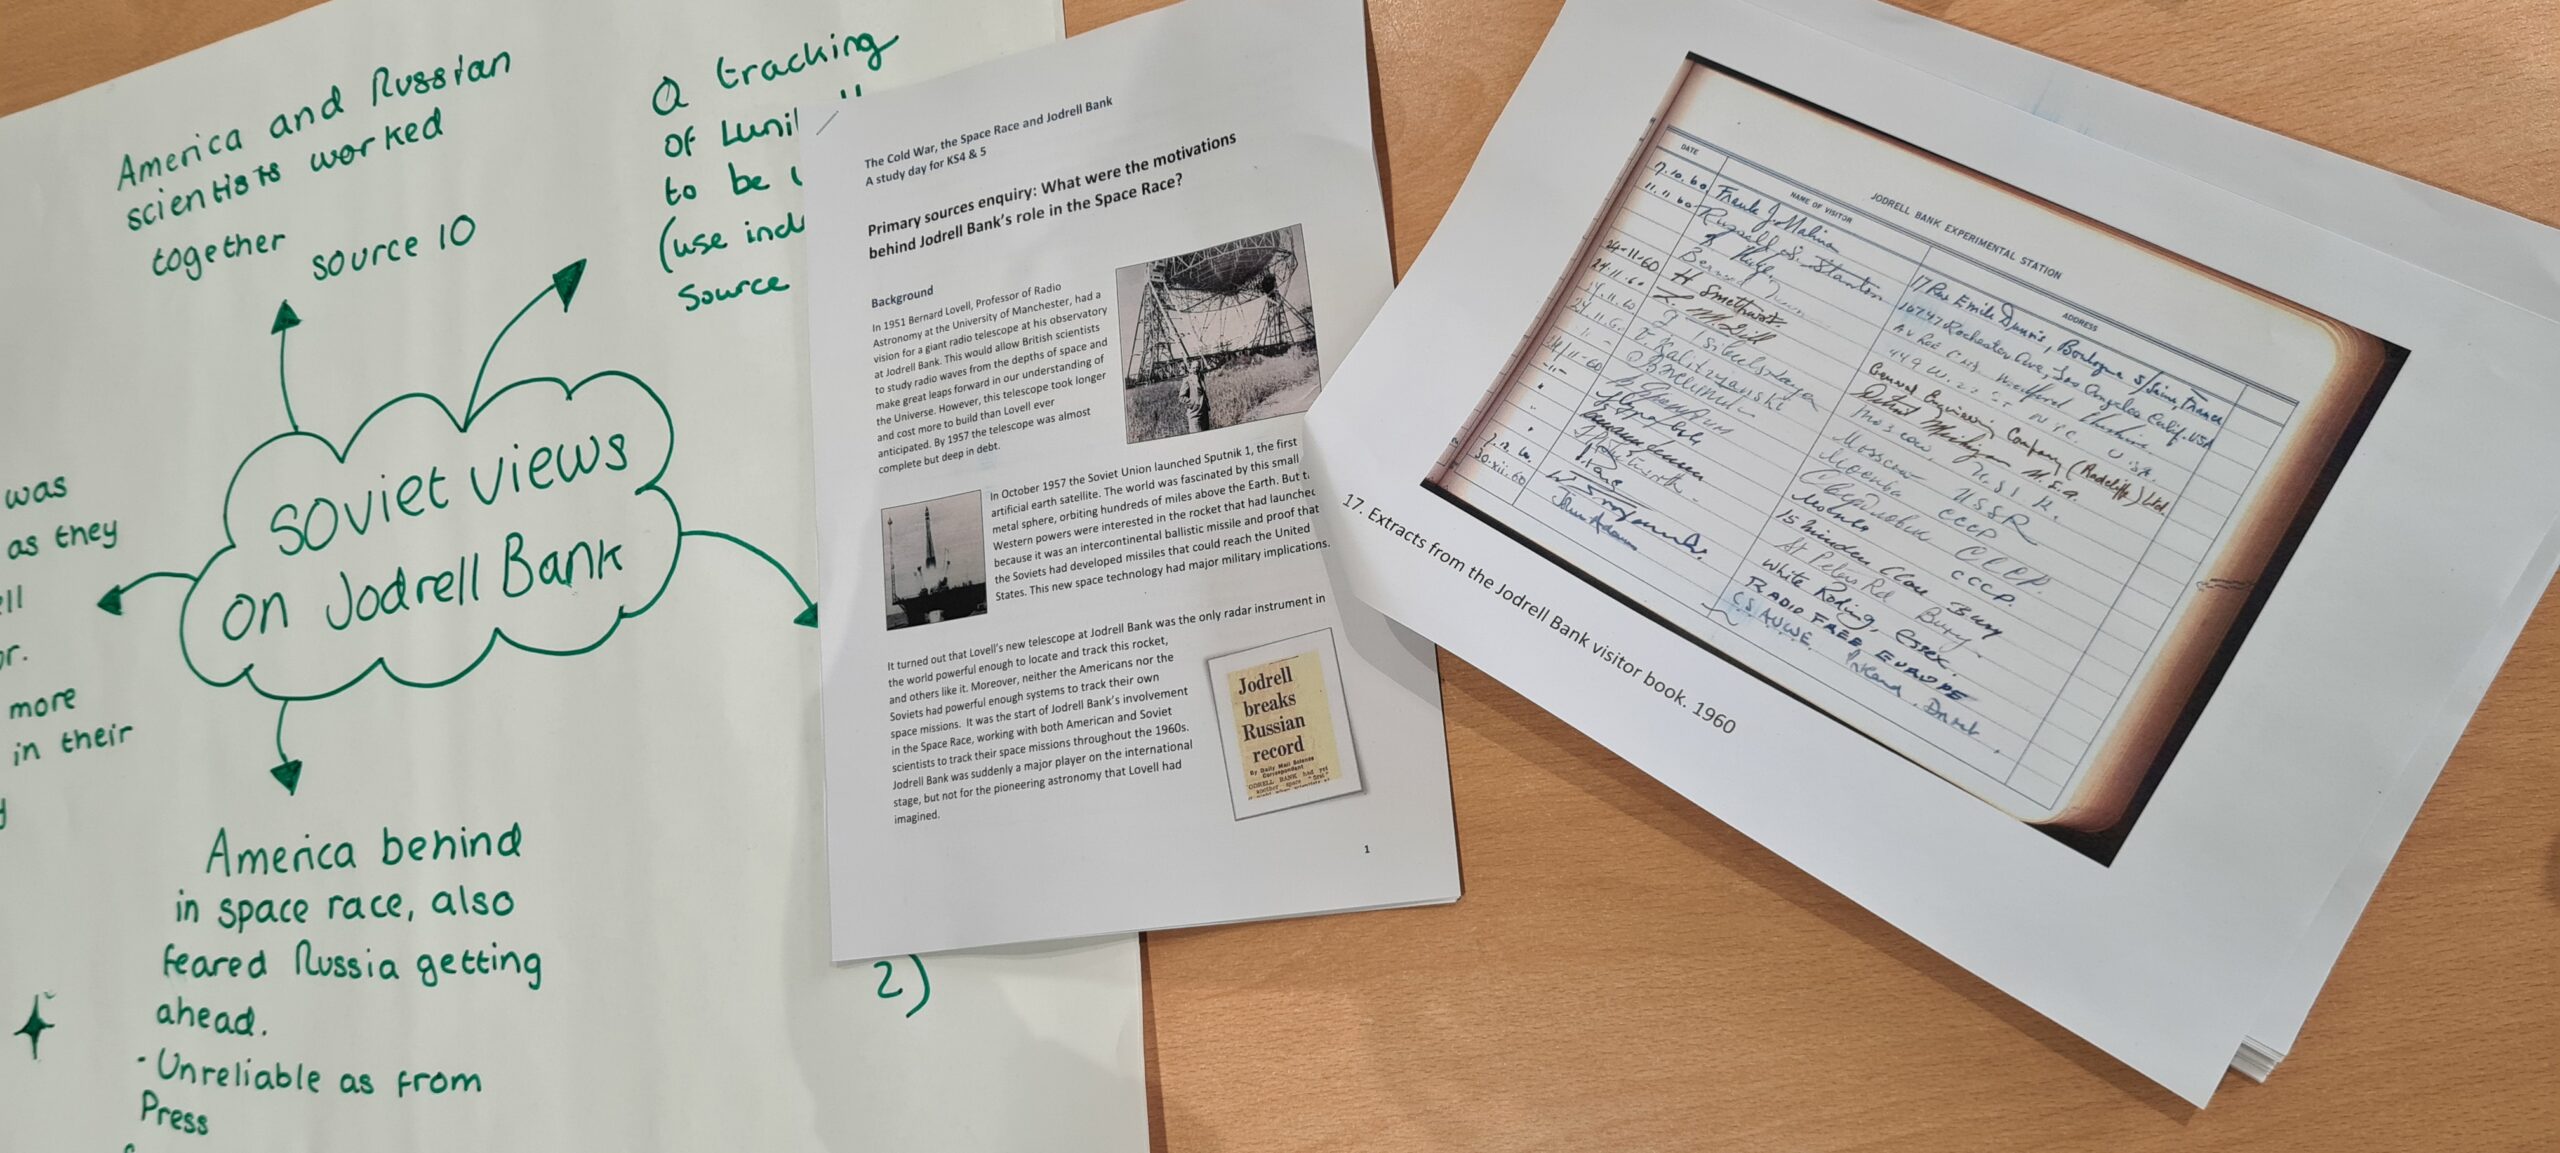 America and Russian
scientists worked
together
source 10
a tracking
of
to be
(use
Source
was
as they
more
in their
Soviet views
on Jodrell Bank
America behind
in space race, also
feared Russia getting
ahead.
- Unreliable as from
Press
2)
The Cold War, the Space Race and Jodrell Bank
A study day for KS4 & 5
Primary sources enquiry: What were the motivations
behind Jodrell Bank's role in the Space Race?
Background
In 1951 Bernard Lovell, Professor of Radio
Astronomy at the University of Manchester, had a
vision for a giant radio telescope at his observatory
at Jodrell Bank. This would allow British scientists
to study radio waves from the depths of space and
make great leaps forward in our understanding of
the Universe. However, this telescope took longer
and cost more to build than Lovell ever
anticipated. By 1957 the telescope was almost
complete but deep in debt.
In October 1957 the Soviet Union launched Sputnik 1, the first
artificial earth satellite. The world was fascinated by this small
metal sphere, orbiting hundreds of miles above the Earth. But
Western powers were interested in the rocket that had launched
because it was an intercontinental ballistic missile and proof that
the Soviets had developed missiles that could reach the United
States. This new space technology had major military implications.
It turned out that Lovell's new telescope at Jodrell Bank was the only radar instrument in
the world powerful enough to locate and track this rocket,
and others like it. Moreover, neither the Americans nor the
Soviets had powerful enough systems to track their own
space missions. It was the start of Jodrell Bank's involvement
in the Space Race, working with both American and Soviet
scientists to track their space missions throughout the 1960s.
Jodrell Bank was suddenly a major player on the international
stage, but not for the pioneering astronomy that Lovell had
imagined.
Jodrell
breaks
Russian
record
By Daily Mail Science
Correspondent
1
JODRELL BANK EXPERIMENTAL STATION
DATE NAME OF VISITOR ADDRESS
Frank J. Malina 17 Rue Emile Dunois, Boulogne s/Seine, France
11.11.60 Russell S. Stanton 10747 Rochester Ave, Los Angeles Calif. USA
24-11-60 H Smethurst General Engineering Company (Radcliffe) Ltd.
24.11.60 Detroit Michigan U.S.A.
Moscow USSR
Москва СССР
Свердловск СССР
СССР
15 Minden Close Bury
St Peters Rd Bury
White Roding, Essex
RADIO FREE EUROPE
30.xii.60 John Adams
17. Extracts from the Jodrell Bank visitor book. 1960